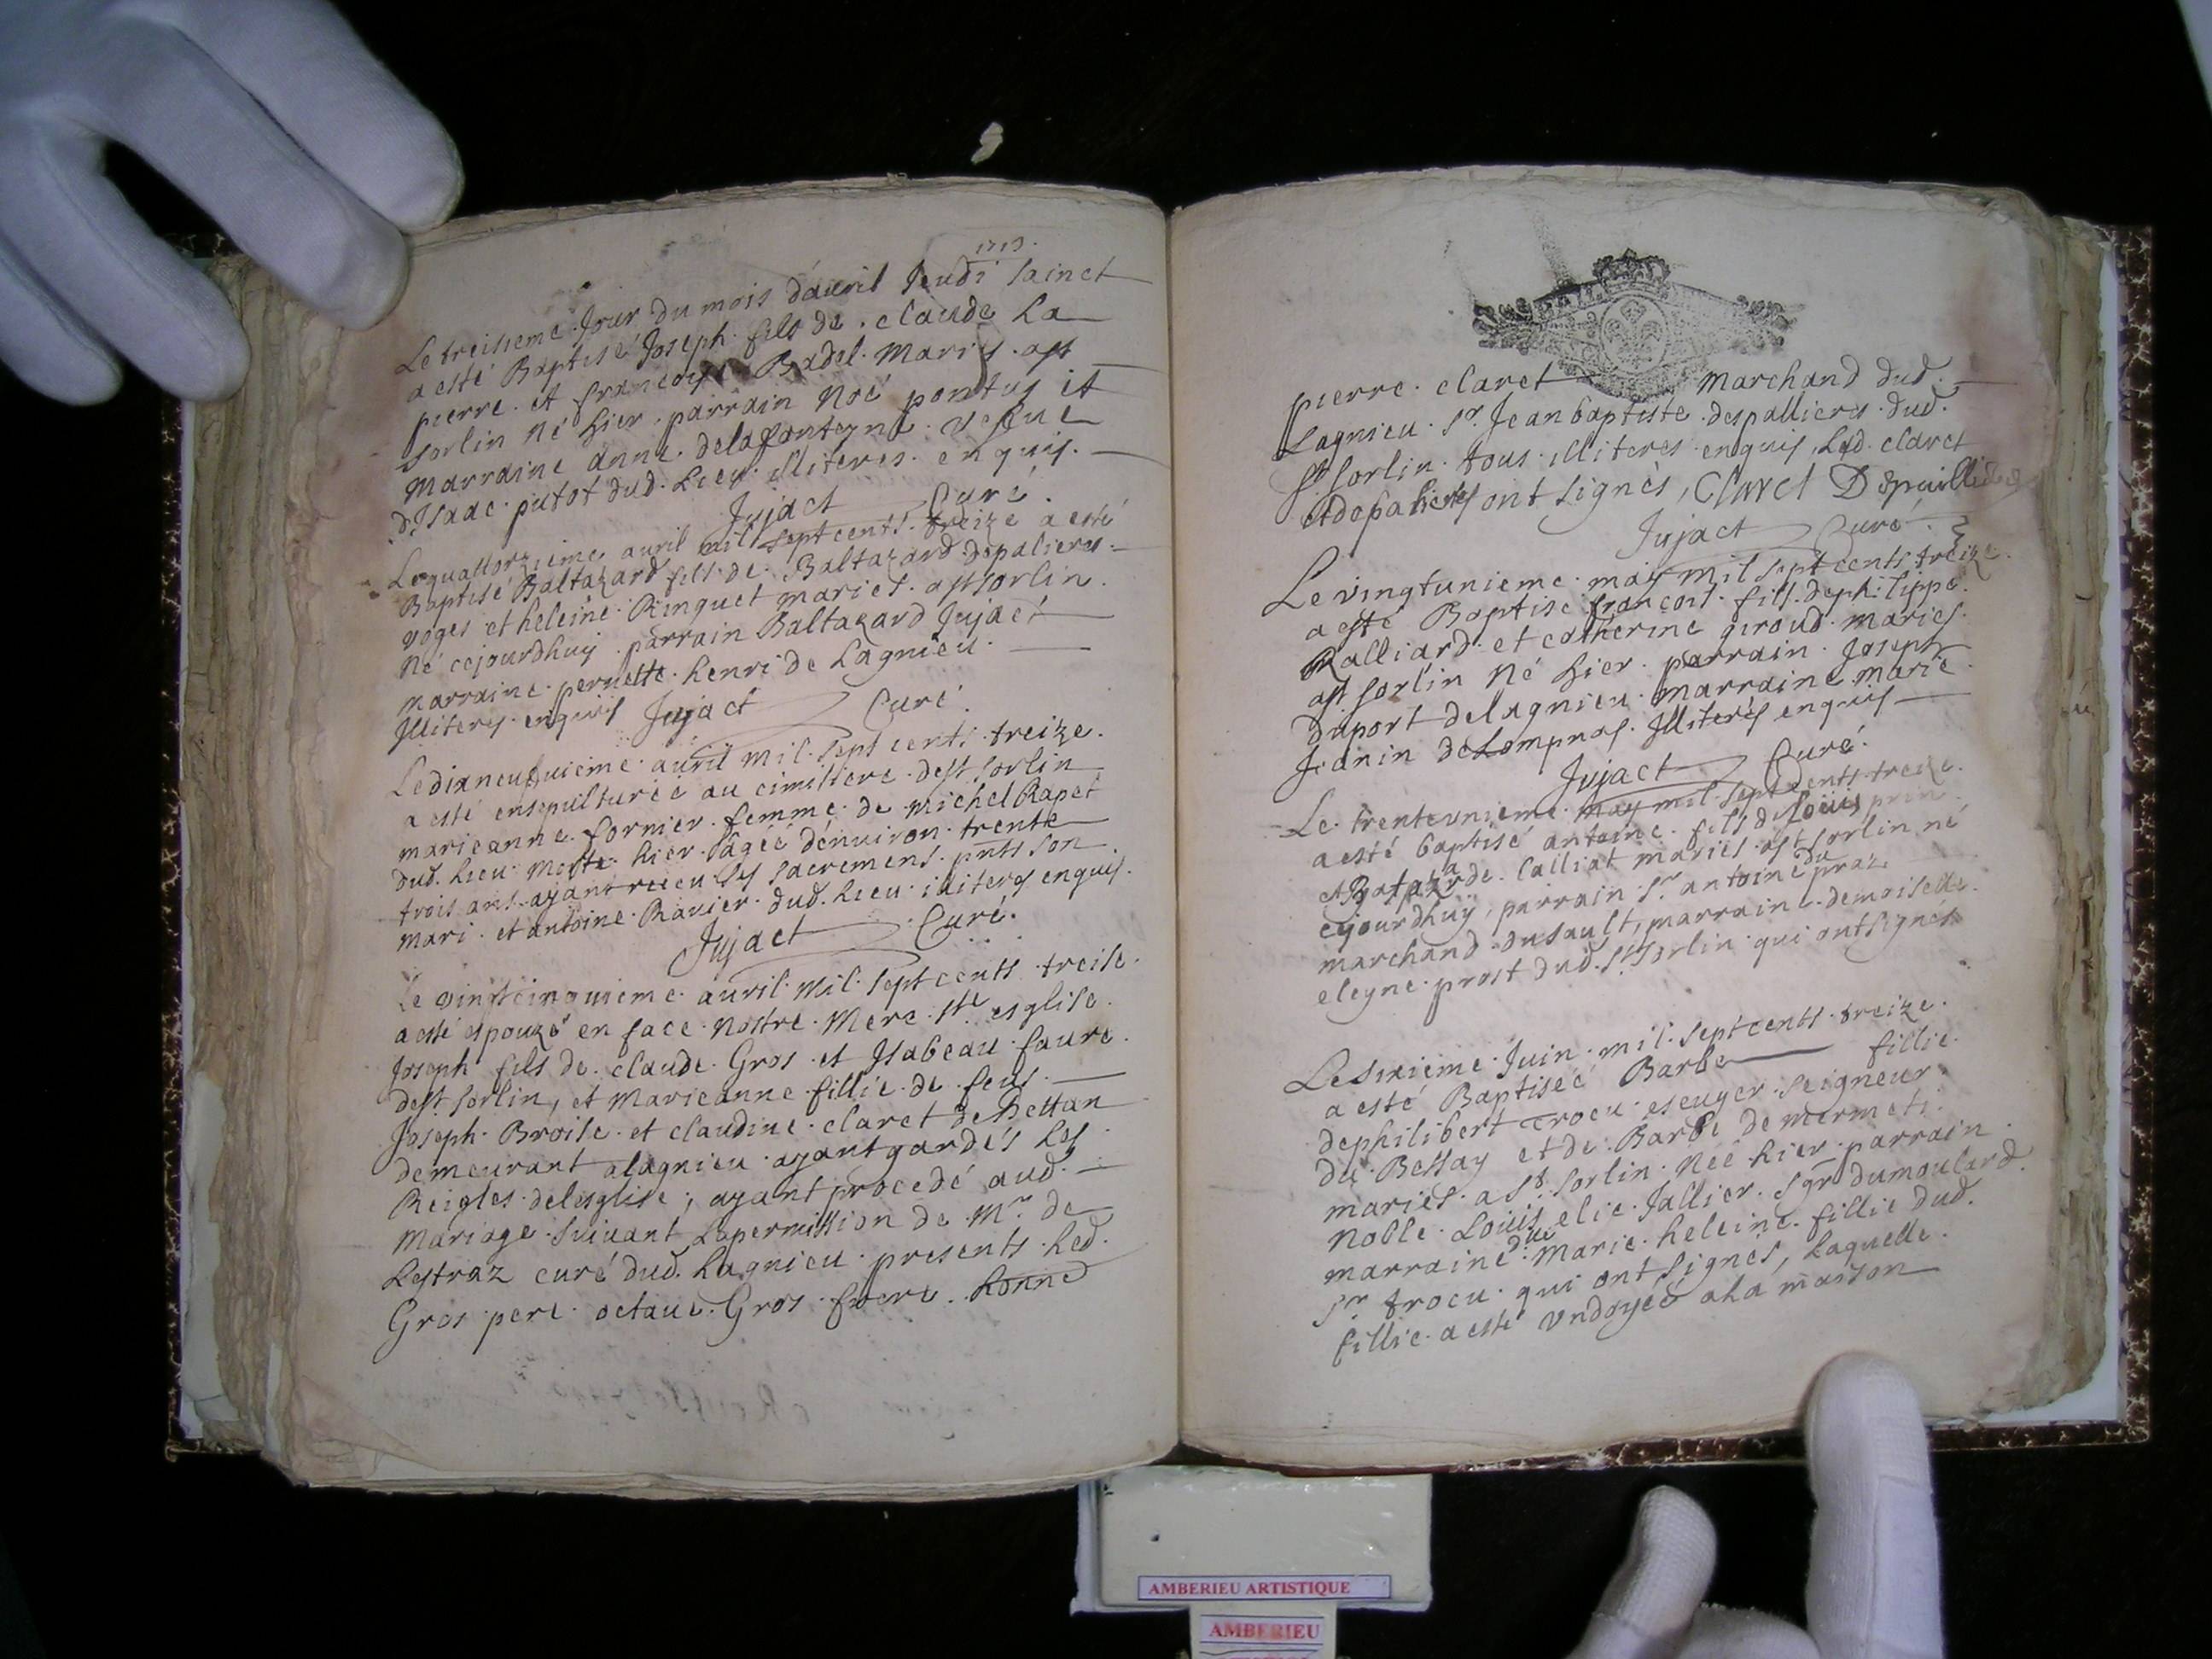 1713.
Le treisieme Jour du mois dauril Jeudi sainct
a esté Baptisé Joseph fils de claude La
pierre et francoyse Badel Mariés a st
sorlin Né hier parrain Noé pontus et
Marraine Anne delafonteyne vefue
d'Isaac putot dud. Lieu illiteres enquis.
Jujact Curé.
Le quattorzieme auril mil sept cents treize a esté
Baptisé Baltazard fils de Baltazard depaliers
voges et heleine Ringuet mariés a st sorlin.
Né cejourdhuy parrain Baltazard Jujact
marraine pernette henri de Lagnieu.
Illiteres enquis Jujact Curé.
Le dixneufuieme auril mil sept cents treize.
a esté ensepulturéé au cimitiere de st sorlin
marieanne fornier femme de michel Rapet
dud. Lieu Morte hier agéé d'enuiron trente
trois ans ayant receu les sacremens pnts son
mari et antoine Ravier dud. Lieu illiteres enquis.
Jujact Curé.
Le vingtcinquieme auril mil sept cents treise.
a esté espouzé en face Nostre Mere ste esglise
Joseph fils de claude Gros et Isabeau faure.
de st sorlin, et Marieanne fillie de feus
Joseph Broise et claudine claret de Bettan
demeurant a lagnieu ayant gardés les
Reigles de lesglise, ayant procedé aud.
Mariage suiuant La permission de Mr. de
Lestraz curé dud. Lagnieu presents led.
Gros pere octaue Gros frere honne
pierre claret Marchand dud.
Lagnieu sr. Jean baptiste despalliers dud.
st sorlin tous illiteres enquis, Led. claret
et depaliers ont signés, Claret Depaillieres
Jujact Curé
Le vingtunieme may mil sept cents treize.
a esté Baptise francois fils de philippe
Ralliard et catherine giroud mariés.
a st sorlin Né hier parrain Joseph
duport de lagnieu marraine marie
Jeanin de Lompnas Illiterés enquis
Jujact Curé.
Le trentevnieme may mil sept cents treize.
a esté baptisé antoine fils de Loüis prin
et Batazarde Calliat mariés a st sorlin né
cejourdhuy, parrain sr antoine du praz
marchand du sault, marraine demoiselle
eleyne prost dud. st sorlin qui ont signés
Le sixieme Juin mil sept cents treize.
a esté Baptiséé Barbe fillie
de philibert Trocu escuyer seigneur
du Bettay et de Barbe de mermeti
mariés a st sorlin Néé hier parrain
Noble Louis elie Jallier sgr dumoulard.
marraine dlle Marie heleine fillie dud.
sr trocu qui ont signés, Laquelle
fillie a esté vndoyéé a la maison
AMBERIEU ARTISTIQUE
AMBERIEU